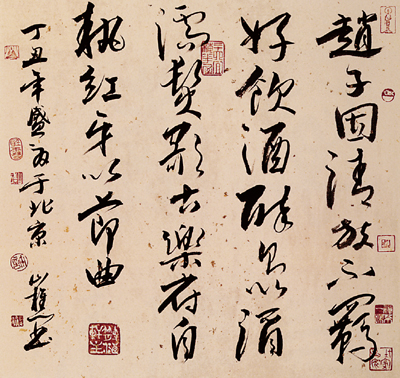 趙子固清放不羈
好飲酒醉則以酒
濡髮歌古樂府自
執紅牙以節曲
丁丑年盛夏于北京